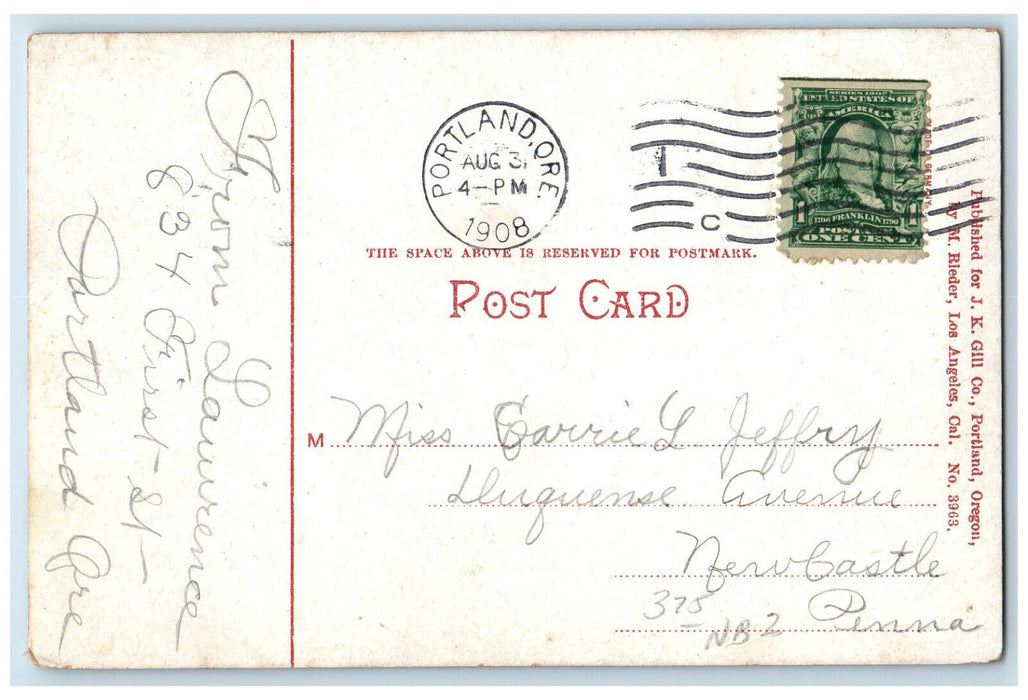 From Lawrence
834 First-St-
Portland Ore
PORTLAND, ORE.
AUG 31
4-PM
1908
1
C
SERIES 1902
UNITED STATES OF
AMERICA
1 1706 FRANKLIN 1790 1
POSTAGE
ONE CENT
THE SPACE ABOVE IS RESERVED FOR POSTMARK.
POST CARD
M Miss Carrie L Jeffry
Duquense Avenue
New Castle
Penna
375
NB 2
Published for J. K. Gill Co., Portland, Oregon,
by M. Rieder, Los Angeles, Cal. No. 3963.